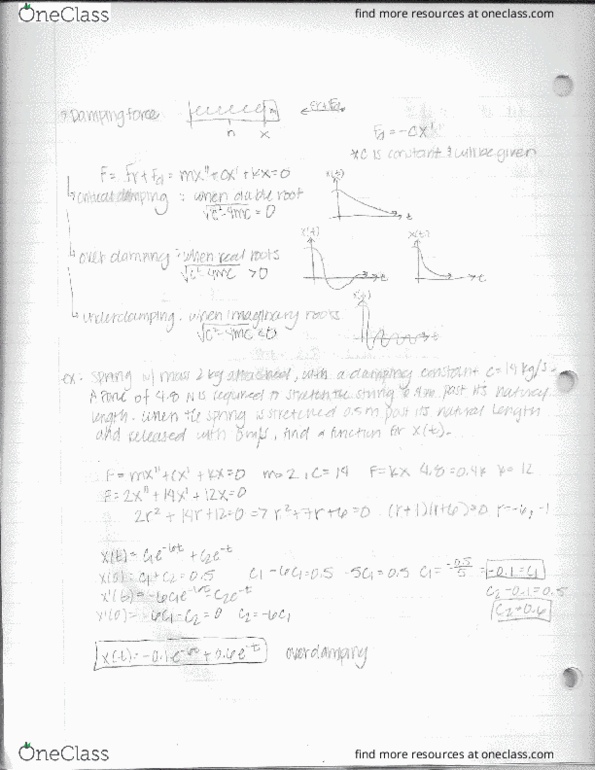 OneClass
find more resources at oneclass.com
Damping force
n x
Fd = -cx'
*c is constant & will be given
F = Fr + Fd = mx" + cx' + kx = 0
critical damping : when double root
√c²-4mc = 0
x(t)
t
over damping : when real roots
√c²-4mc > 0
x(t)
t
x(t)
t
underdamping . when imaginary roots
√c²-4mc < 0
x(t)
t
ex. Spring w/ mass 2 kg attached, with a damping constant c = 14 kg/s.
A force of 4.8 N is required to stretch the string past its natural
length. When the spring is stretched 0.5 m past its natural length
and released with 0 m/s, find a function for x(t).
F = mx" + cx' + kx = 0 m = 2, c = 14 F = kx 4.8 = 0.4k k = 12
F = 2x" + 14x' + 12x = 0
2r² + 14r + 12 = 0 => r² + 7r + 6 = 0 (r+1)(r+6) = 0 r = -6, -1
x(t) = c₁e^-6t + c₂e^-t
x(0) = c₁ + c₂ = 0.5 c₁ - 6c₁ = 0.5 -5c₁ = 0.5 c₁ = -0.5/5 = -0.1 = c₁
x'(t) = -6c₁e^-6t - c₂e^-t c₂ - 0.1 = 0.5
x'(0) = -6c₁ - c₂ = 0 c₂ = -6c₁ c₂ = 0.6
x(t) = -0.1e^-6t + 0.6e^-t overdamping
OneClass
find more resources at oneclass.com